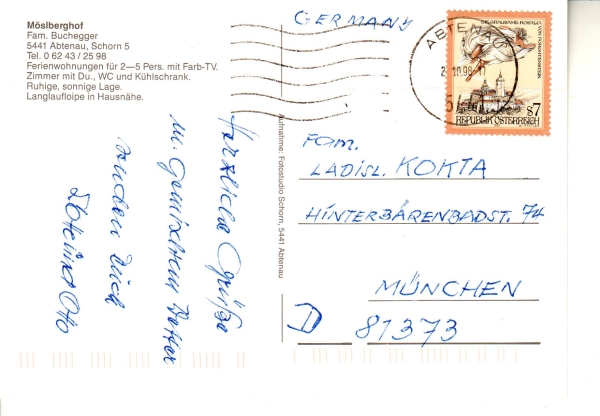 Möslberghof
Fam. Buchegger
5441 Abtenau, Schorn 5
Tel. 0 62 43 / 25 98
Ferienwohnungen für 2—5 Pers. mit Farb-TV.
Zimmer mit Du., WC und Kühlschrank.
Ruhige, sonnige Lage.
Langlaufloipe in Hausnähe.
GERMANY
ABTENAU
10.98
DIE GRAUSAME ROSALIA VON FORCHTENSTEIN
S7
REPUBLIK ÖSTERREICH
Herzliche Grüße
senden Dich
Otto
Aufnahme: Fotostudio Schorn, 5441 Abtenau
FAM.
LADISL. KOKTA
HINTERBÄRENBADST. 74
MÜNCHEN
D 81373